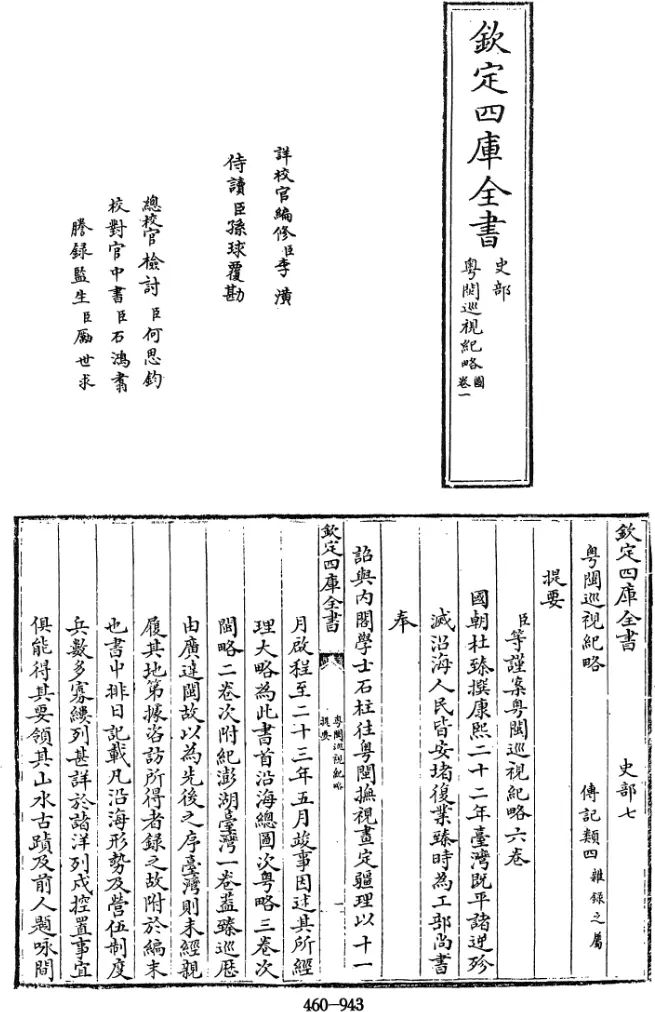 欽定四庫全書
史部
粵閩巡視紀略圖卷一
詳校官編修臣李潢
侍讀臣孫球覆勘
總校官檢討臣何思鈞
校對官中書臣石鴻翥
謄錄監生臣勵世求
欽定四庫全書 史部七
粵閩巡視紀略 傳記類四 雜錄之屬
提要
臣等謹案粵閩巡視紀略六卷
國朝杜臻撰康熙二十二年臺灣既平諸逆殄
滅沿海人民皆安堵復業臻時為工部尚書
奉
詔與內閣學士石柱往粵閩撫視畫定疆理以十一
欽定四庫全書 粵閩巡視紀略 提要 一
月啟程至二十三年五月竣事因述其所經
理大略為此書首沿海總圖次粵略三卷次
閩略二卷次附紀澎湖臺灣一卷蓋臻巡歷
由廣達閩故以為先後之序臺灣則未經親
履其地第據咨訪所得者錄之故附於編末
也書中排日記載凡沿海形勢及營伍制度
兵數多寡縷列甚詳於諸洋列戍控置事宜
俱能得其要領其山水古蹟及前人題咏間
460-943